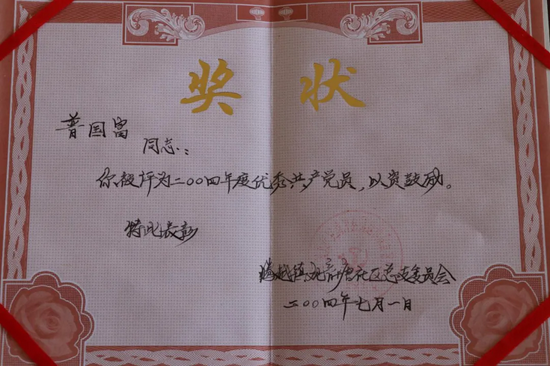 奖状
普国富
同志:
你被评为二〇〇四年度优秀共产党员，以资鼓励。
特此表彰
社区总支委员会
二〇〇四年七月一日